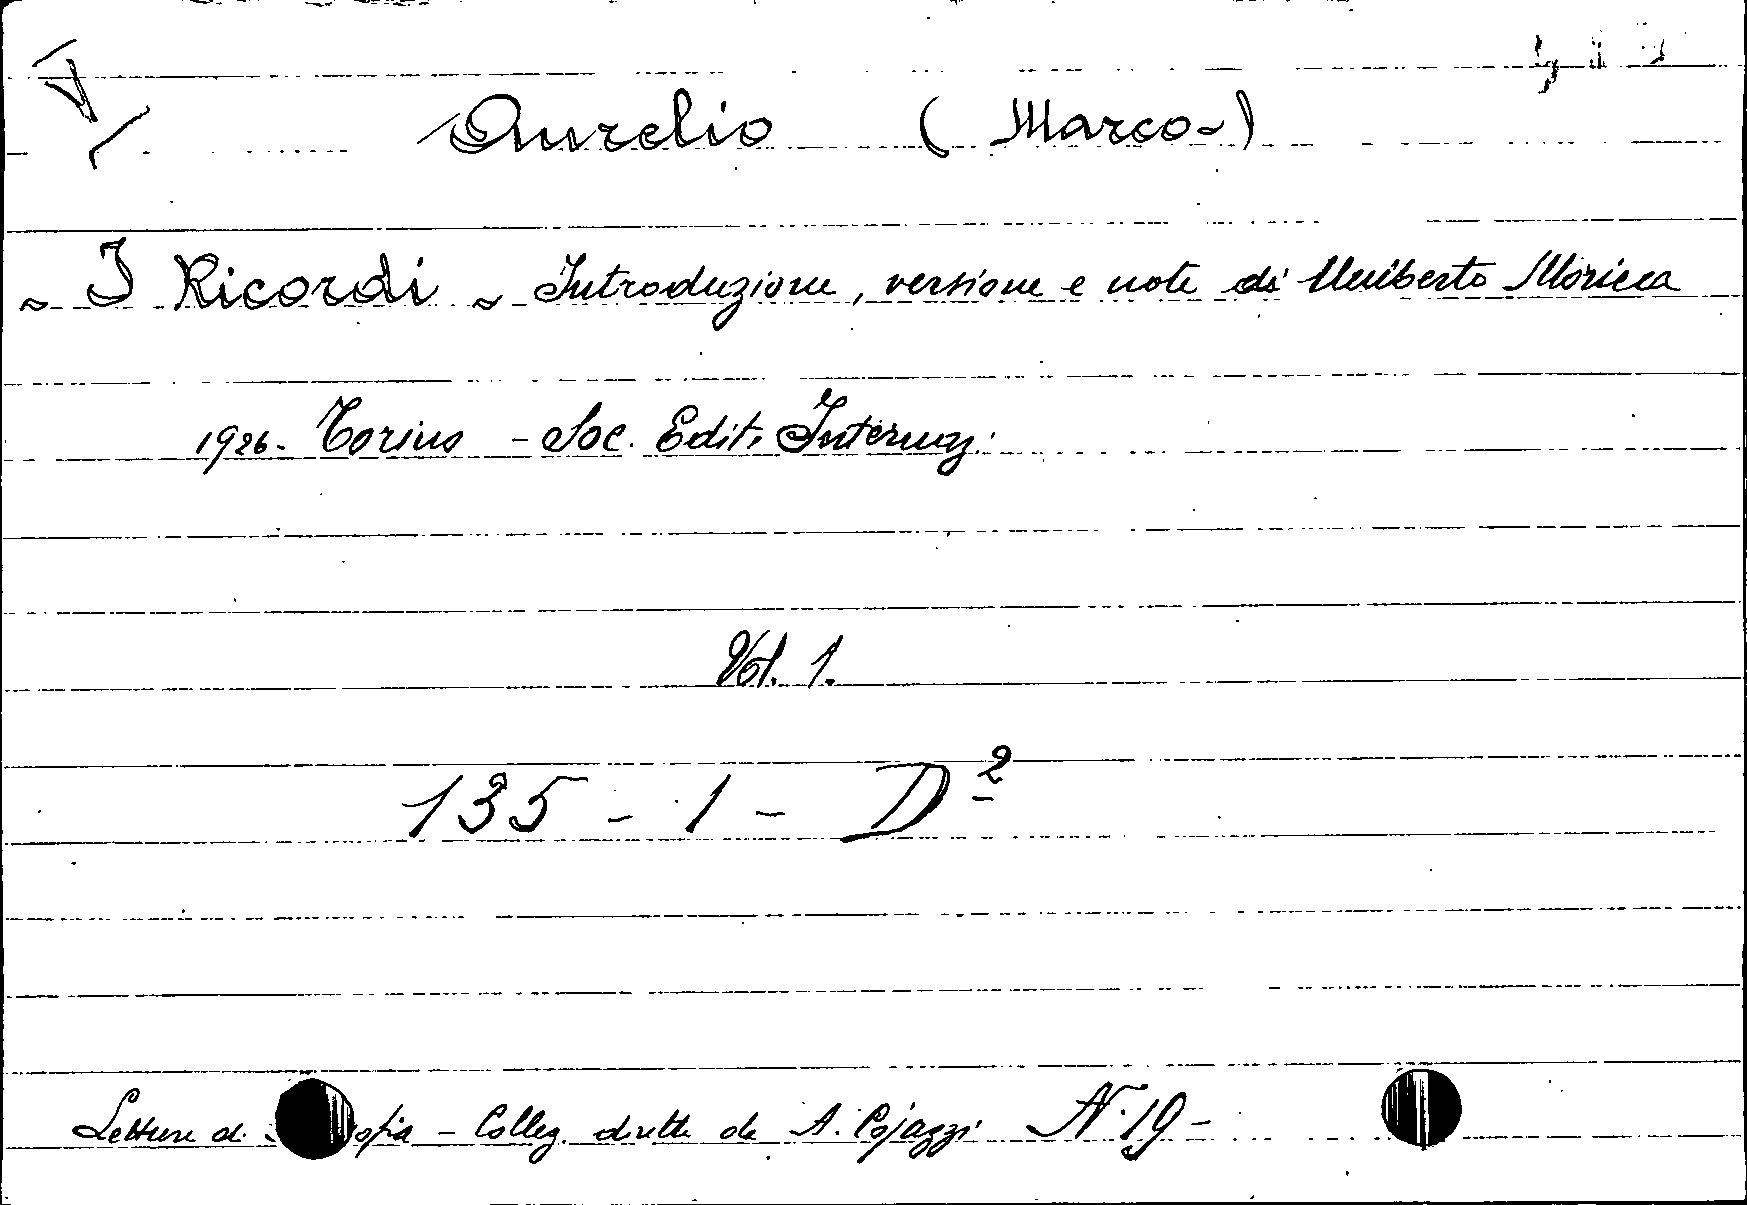 Aurelio (Marco-)
- I Ricordi - Introduzione, versione e note di Umberto Moricca
1926- Torino - Soc. Edit. Internaz.
Vol. 1.
135 - 1 - D²
Letture di - Collez. diretta da A. Cojazzi N. 19 -